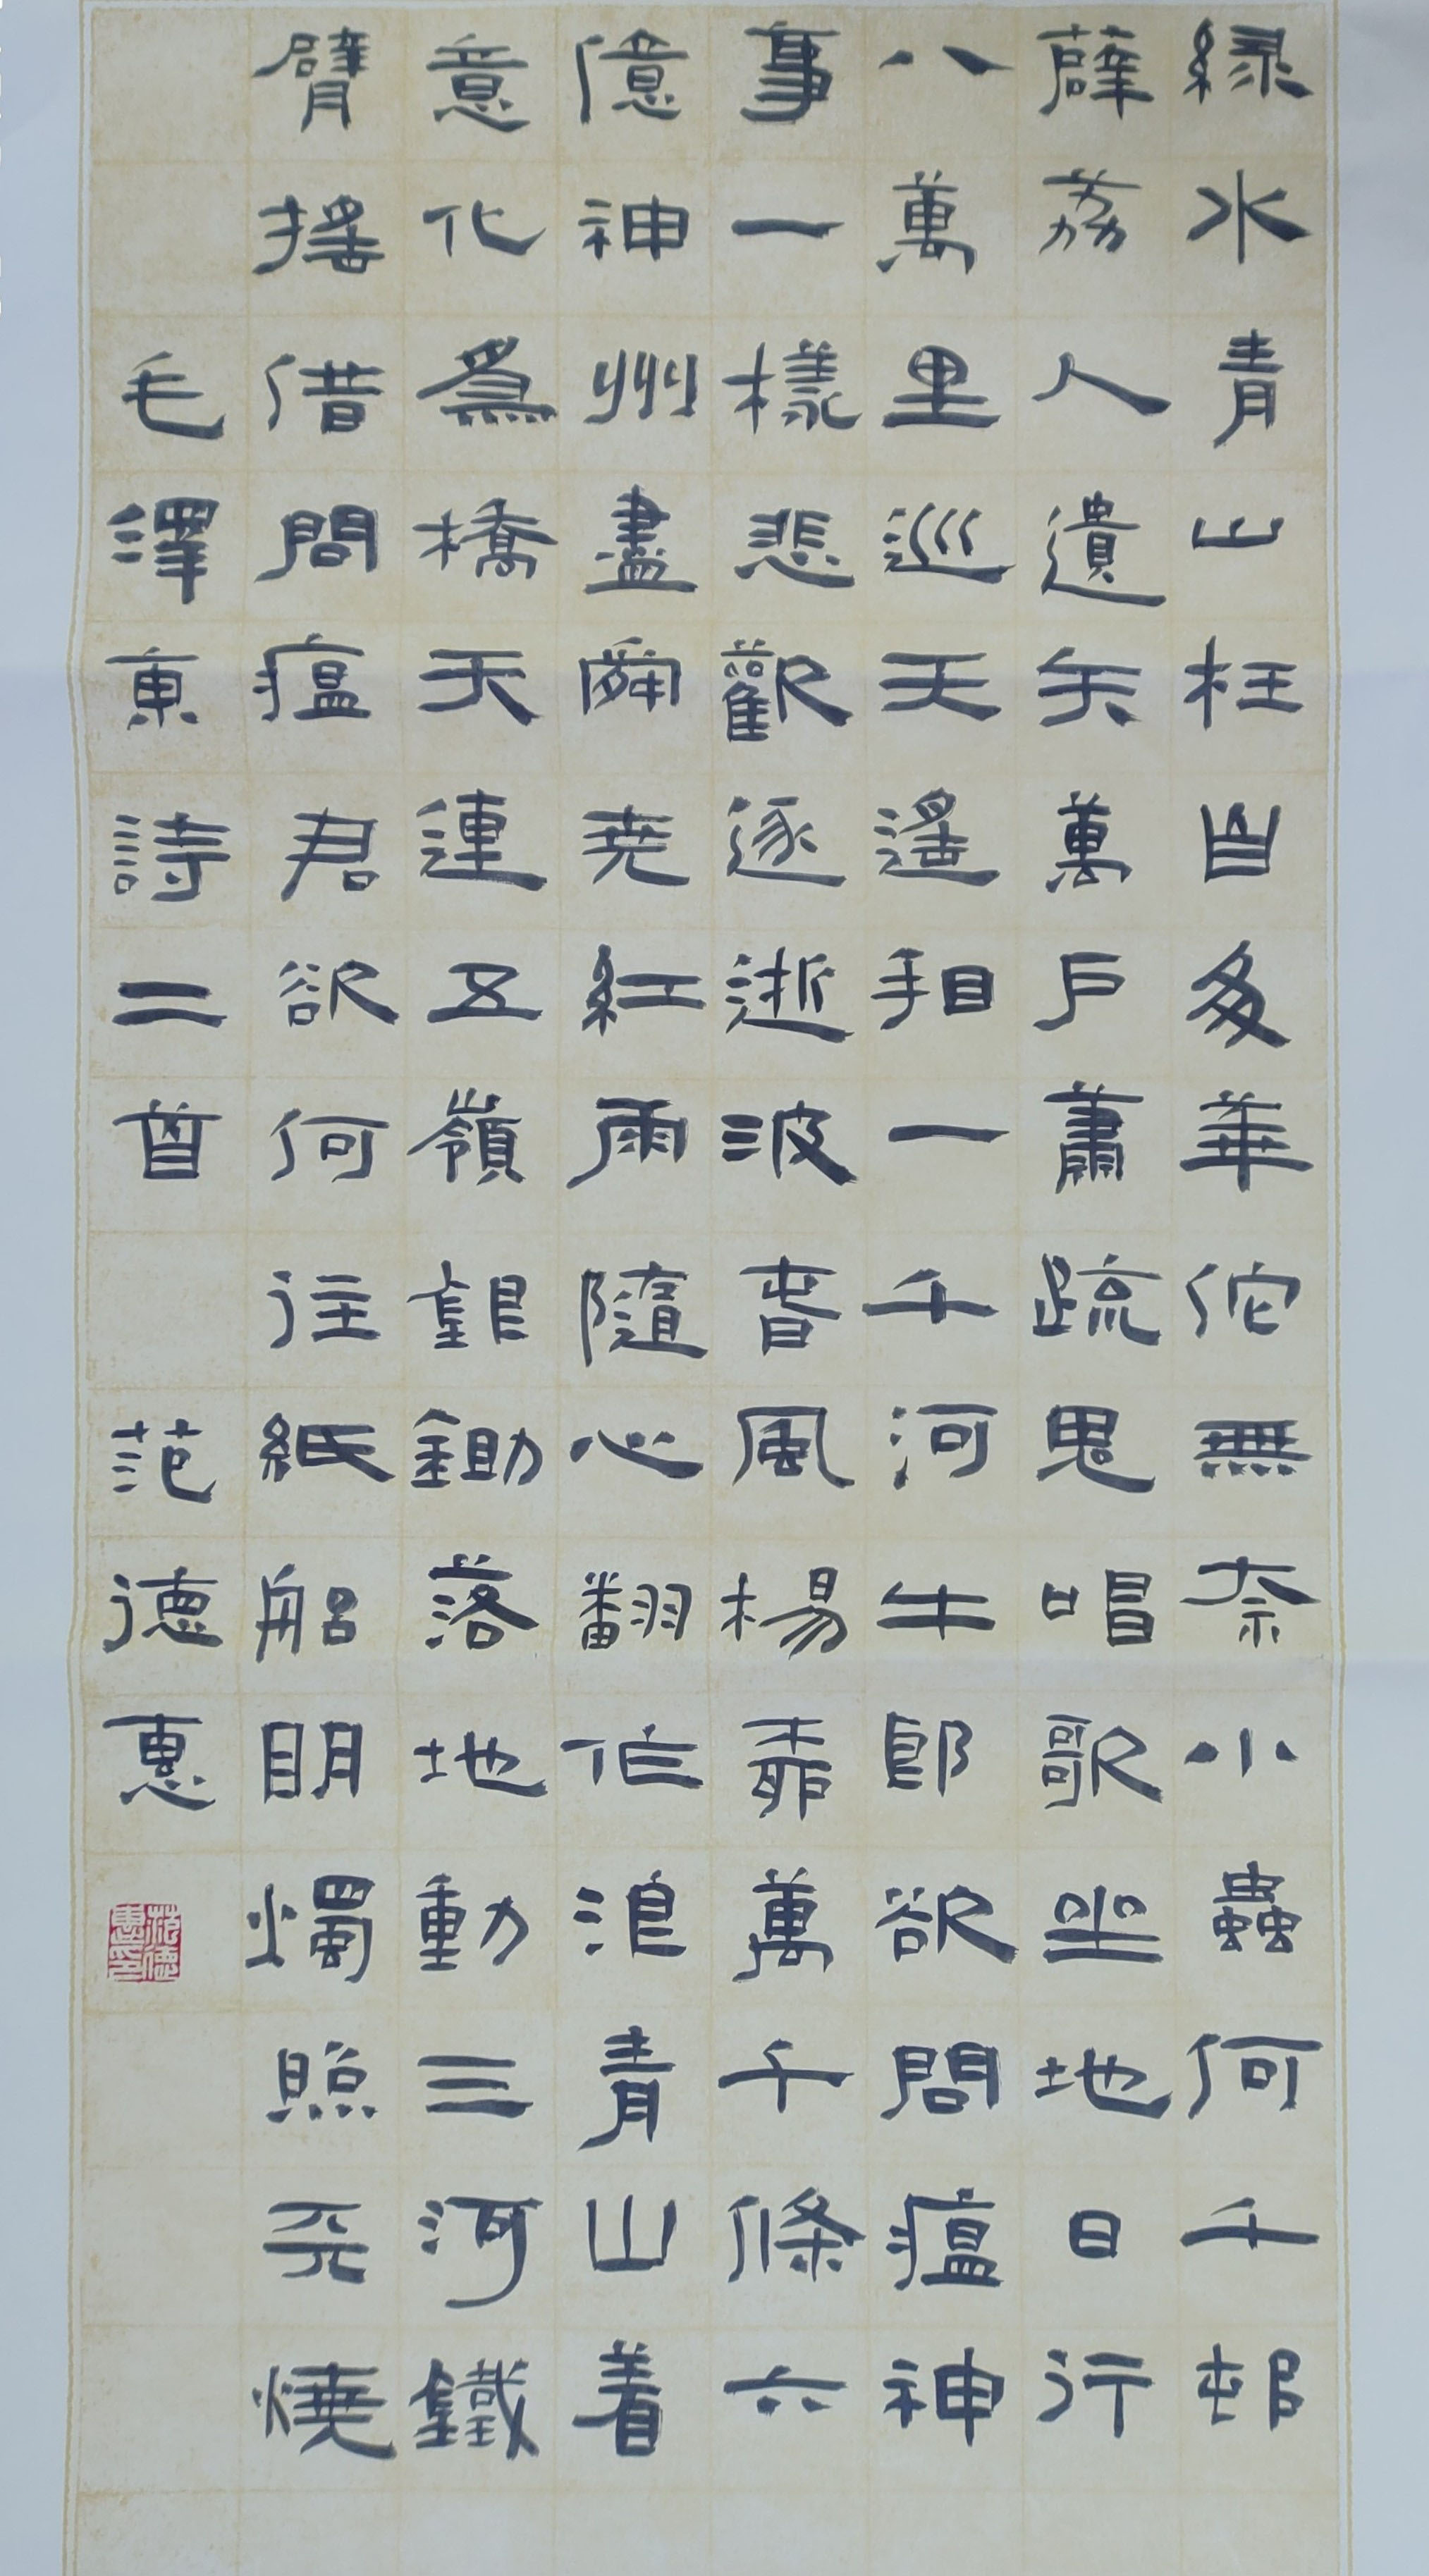 綠水青山枉自多華佗無奈小蟲何千邨
薜荔人遺矢萬戶蕭疏鬼唱歌坐地日行
八萬里巡天遙相一千河牛郎欲問瘟神
事一樣悲歡逐逝波春風楊柳萬千條六
億神州盡舜堯紅雨隨心翻作浪青山着
意化為橋天連五嶺銀鋤落地動三河鐵
臂搖借問瘟君欲何往紙船明燭照天燒
毛澤東詩二首 范德惠
范德惠印